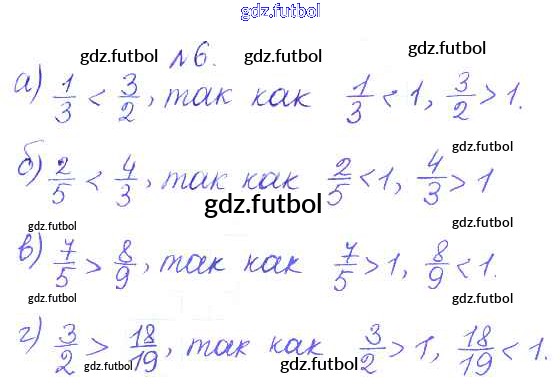 gdz.futbol
gdz.futbol №6. gdz.futbol gdz.futbol
а) 1/3 < 3/2, так как 1/3 < 1, 3/2 > 1.
gdz.futbol
б) 2/5 < 4/3, так как 2/5 < 1, 4/3 > 1
gdz.futbol
gdz.futbol gdz.futbol
в) 7/5 > 8/9, так как 7/5 > 1, 8/9 < 1.
gdz.futbol gdz.futbol
г) 3/2 > 18/19, так как 3/2 > 1, 18/19 < 1.
gdz.futbol gdz.futbol